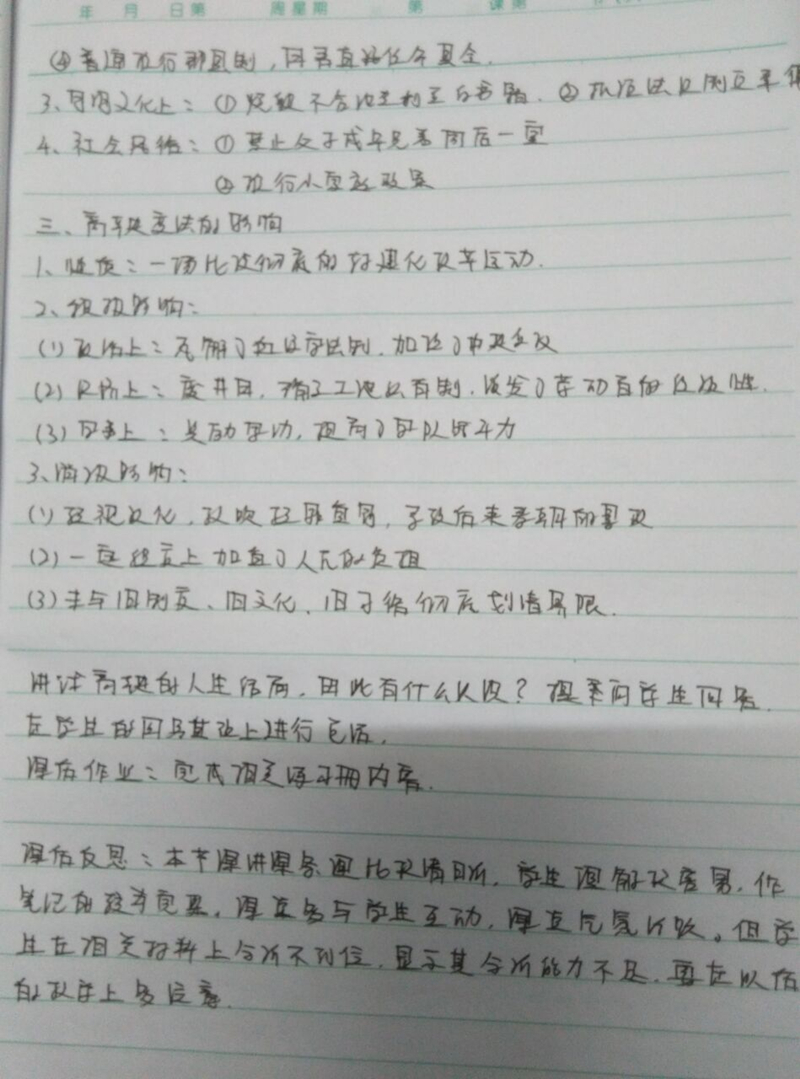 年 月 日第 周星期 第 课第
④普遍推行郡县制，国君直接任命县令。
3、思想文化上：①烧毁不合法 ②
4、社会风俗：①禁止父子成年兄弟同居一室
②推行小家庭政策
三、商鞅变法的影响
1、性质：一场比较彻底的封建化改革运动．
2、积极影响：
(1)政治上：瓦解了 宗法制，加强了中央集权
(2)经济上：废井田，确立土地私有制，激发了劳动者的积极性．
(3)军事上：奖励军功，提高了军队战斗力
3、消极影响：
(1)轻视教化，鼓吹轻罪重罚，导致后来秦朝的暴政
(2)一定程度上加重了人民的负担
(3)未与旧制度、旧文化、旧习俗彻底划清界限．
讲述商鞅的人生结局，因此有什么认识？提素问学生回答．
在学生的回答基础上进行总结．
课后作业：完成相关练习册内容．
课后反思：本节课讲课条理比较清晰，学生理解较容易，作
笔记的较为完整，课堂多与学生互动，课堂气氛 。但学
生在相关材料上分析不到位，显示其分析能力不足．要在以后
的教学上多注意．